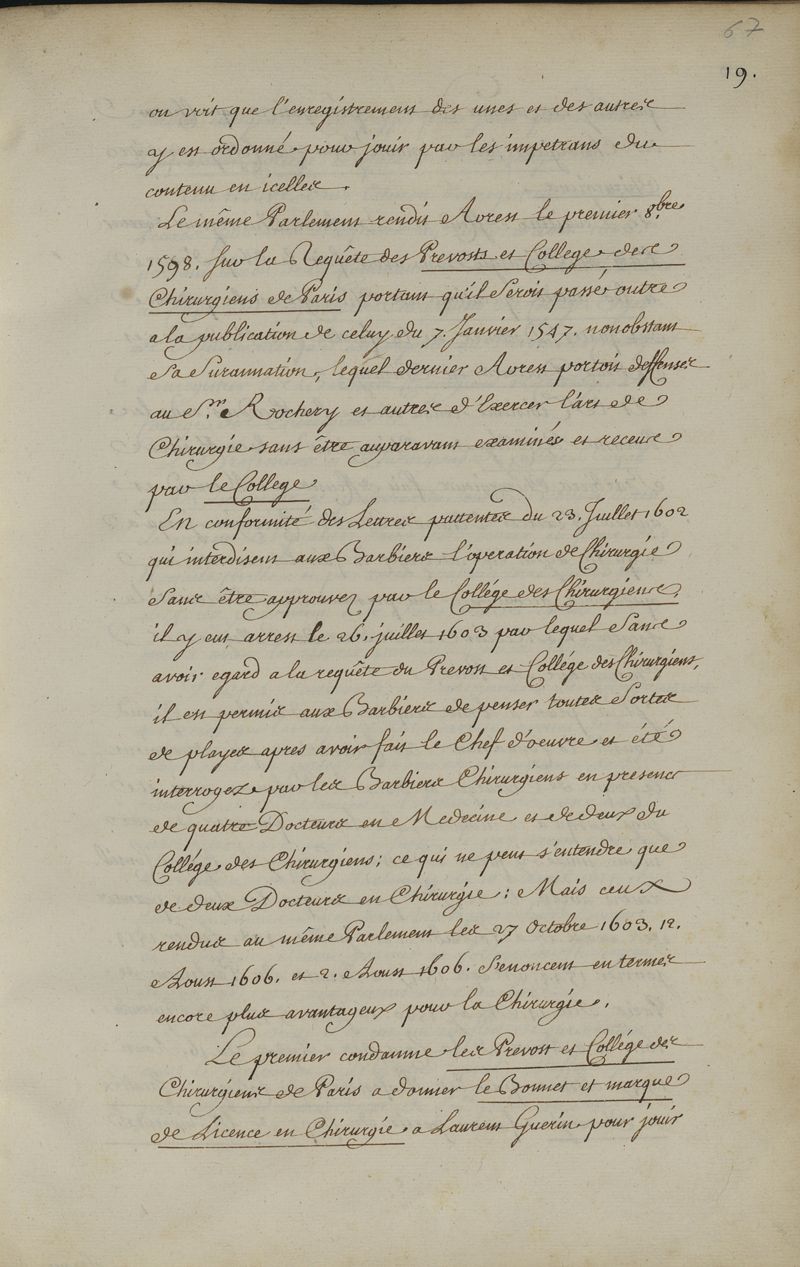 67
19.
on voit que l'enregistrement des unes et des autres
y est ordonné pour jouir par les impetrans du
contenu en icelles.
Le même Parlement rendit Arrest le premier 8.bre
1598. sur la Requête des Prevosts et College des
Chirurgiens de Paris portant qu'il seroit passé outre
a la publication de celuy du 7. Janvier 1547. nonobstant
sa surannation, lequel dernier Arrest portoit deffenses
au S.r Rochery et autres d'Exercer l'art de
Chirurgie sans être auparavant examinés et receus
par le College
En conformité des Lettres pattentes du 23. Juillet 1602
qui interdisent aux Barbiers l'operation de Chirurgie
sans être approuvez par le Collége des Chirurgiens,
il y eut arrest le 26. juillet 1603 par lequel sans
avoir egard a la requête du Prevost et Collége des Chirurgiens,
il est permis aux Barbiers de penser toutes sortes
de playes apres avoir fait le Chef d'oeuvre et été
interrogez par les Barbiers Chirurgiens en presence
de quatre Docteurs en Medecine et de deux du
Collége des Chirurgiens; ce qui ne peut s'entendre que
de deux Docteurs en Chirurgie: Mais ceux
rendus au même Parlement les 27 Octobre 1603. 12.
Aoust 1606. et 2. Aoust 1606. s'enoncent en termes
encore plus avantageux pour la Chirurgie.
Le premier condamne les Prevost et Collége des
Chirurgiens de Paris a donner le Bonnet et marque
de Licence en Chirurgie a Laurent Guerin pour jouir